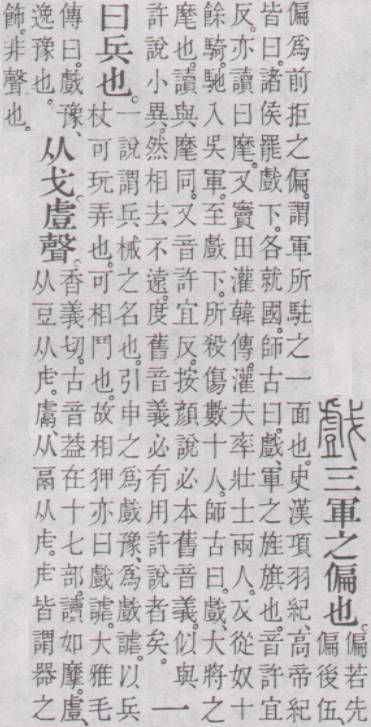 戲三軍之偏也。偏若先
偏後伍、
偏爲前拒之偏。謂軍所駐之一面也。史漢項羽紀、高帝紀
皆曰。諸侯罷戲下。各就國。師古曰。戲、軍之旌旗也。音許宜
反。亦讀曰麾。又竇田灌韓傳。灌夫率壯士兩人。及從奴十
餘騎。馳入吳軍。至戲下。所殺傷數十人。師古曰。戲、大將之
麾也。讀與麾同。又音許宜反。按顏說必本舊音義。似與
許說小異。然相去不遠。度舊音義必有用許說者矣。一
曰兵也。一說謂兵械之名也。引申之爲戲豫、爲戲謔。以兵
杖可玩弄也。可相鬥也。故相狎亦曰戲謔。大雅毛
傳曰。戲豫、
逸豫也。
从戈䖒聲。香義切。古音葢在十七部。讀如摩。䖒、
从豆从虍。鬳从鬲从虍。虍皆謂器之
飾。非聲也。